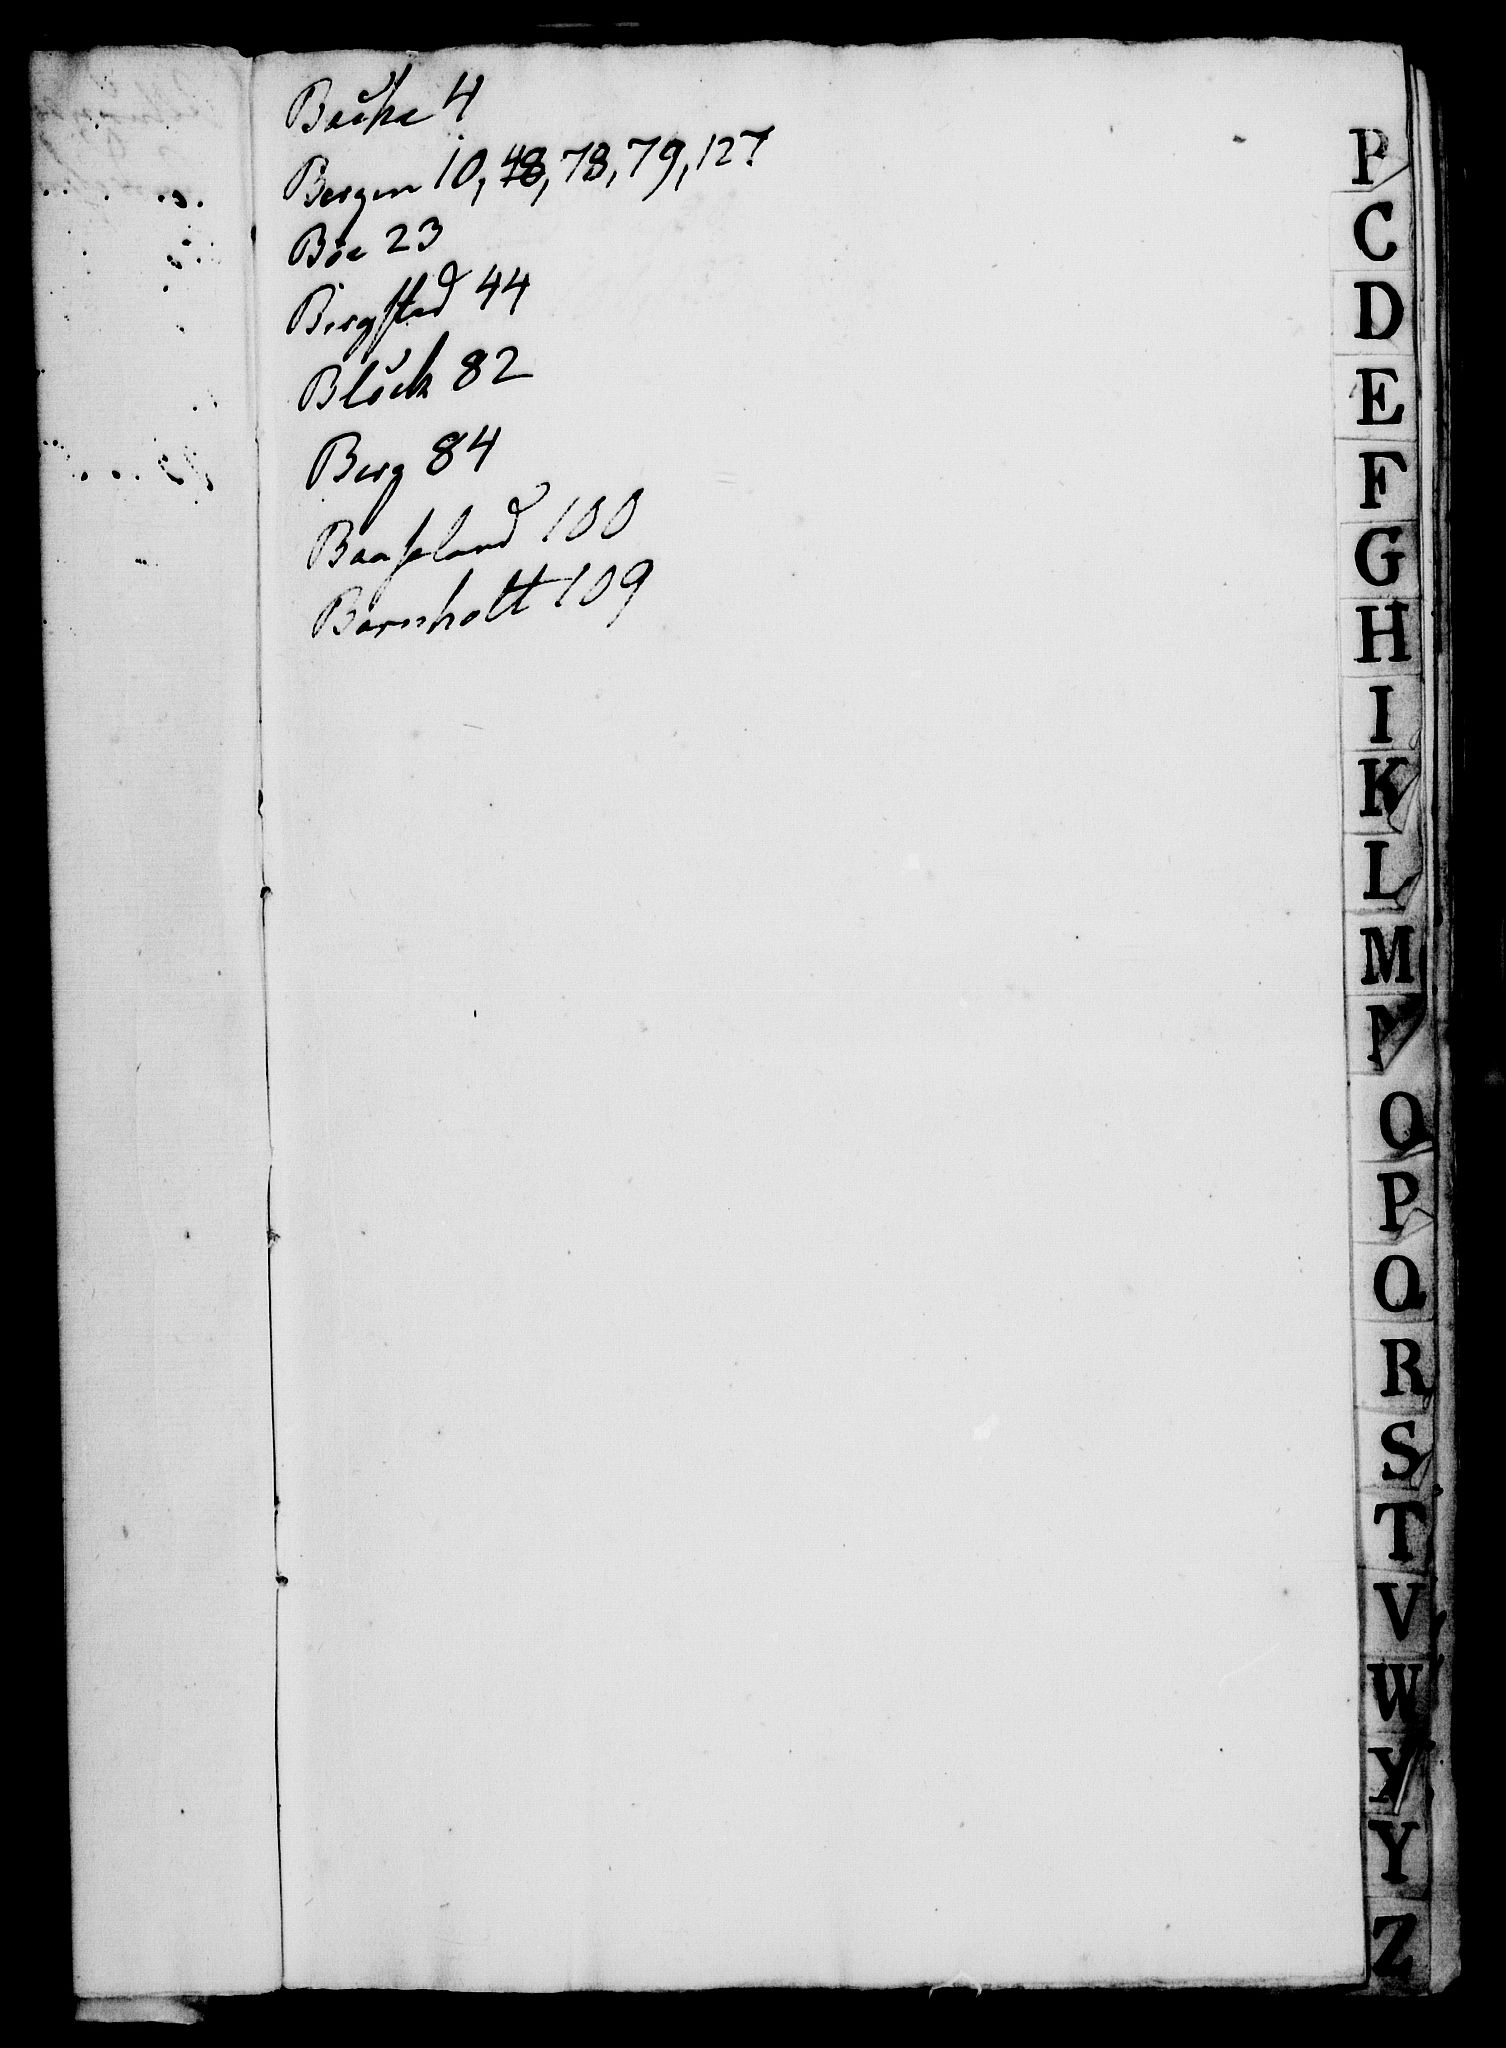 Bache 4
Bergen 10, 48, 78, 79, 127
Böe 23
Birgsted 44
Blöck 82
Berg 84
Baaseland 100
Barnholtt 109
B
C
D
E
F
G
H
I
K
L
M
N
O
P
Q
R
S
T
V
W
X
Y
Z